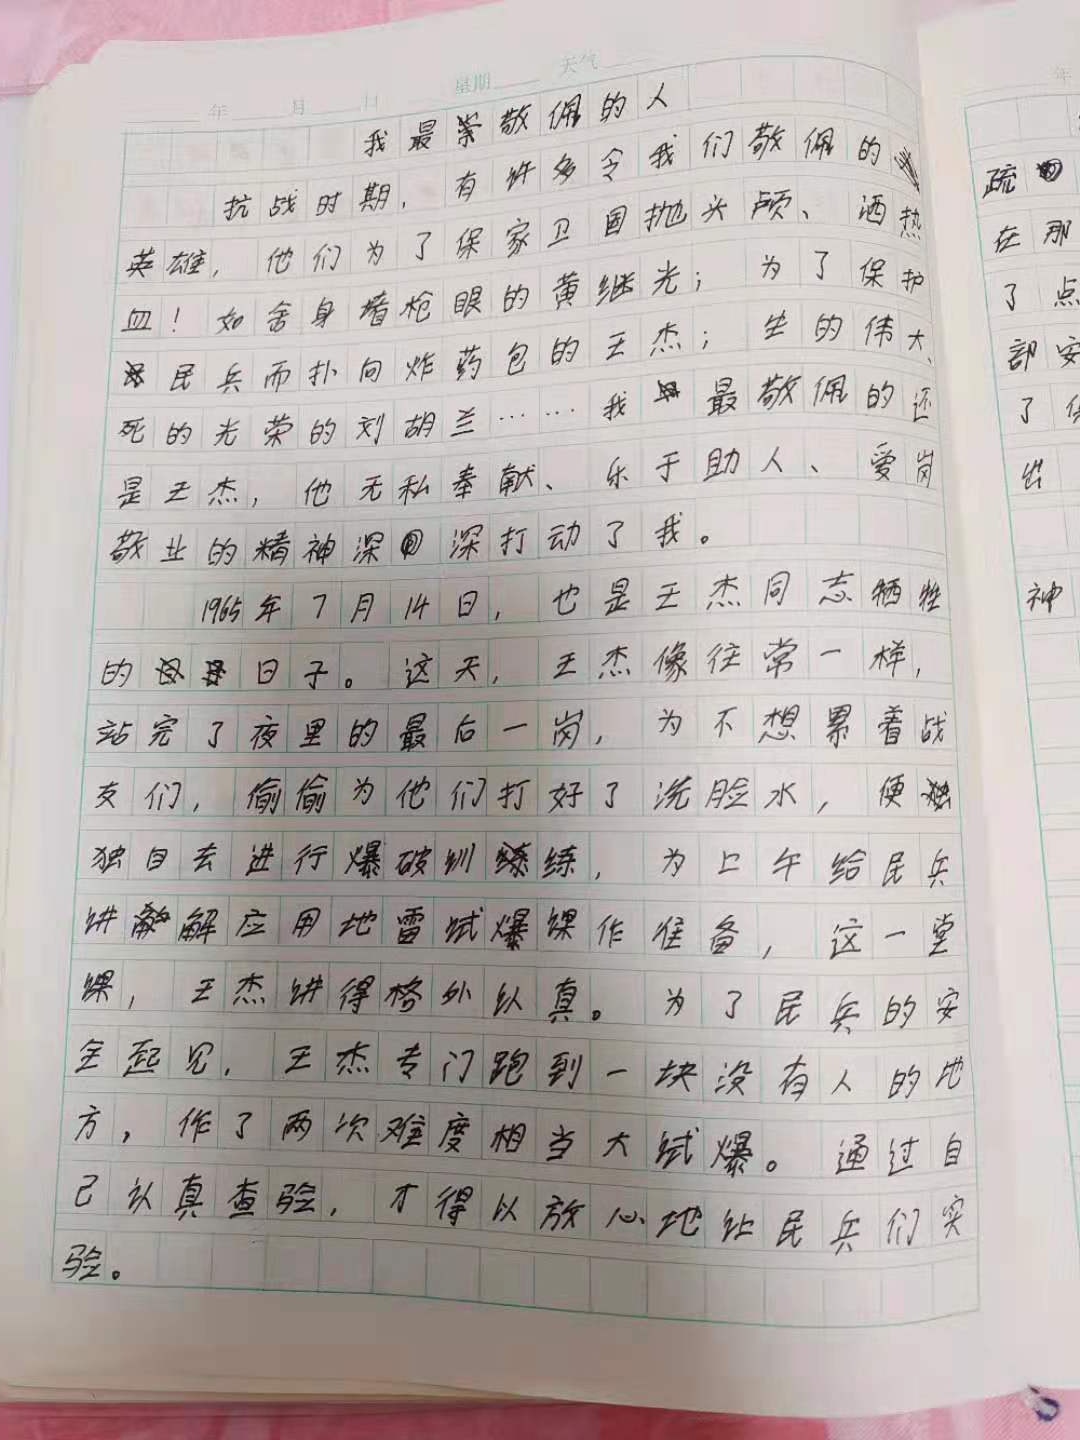 年 月 日 星期 天气
我最崇敬佩的人
抗战时期，有许多令我们敬佩的
英雄，他们为了保家卫国抛头颅、洒热
血！如舍身堵枪眼的黄继光；为了保护
民兵而扑向炸药包的王杰；生的伟大、
死的光荣的刘胡兰……我最敬佩的还
是王杰，他无私奉献、乐于助人、爱岗
敬业的精神深深打动了我。
1965年7月14日，也是王杰同志牺牲
的日子。这天，王杰像往常一样，
站完了夜里的最后一岗，为不想累着战
友们，偷偷为他们打好了洗脸水，便
独自去进行爆破训练，为上午给民兵
讲解应用地雷试爆课作准备，这一堂
课，王杰讲得格外认真。为了民兵的安
全起见，王杰专门跑到一块没有人的地
方，作了两次难度相当大试爆。通过自
己认真查验，才得以放心地让民兵们实
验。
年
疏
在那
了点
部安
了
出
神